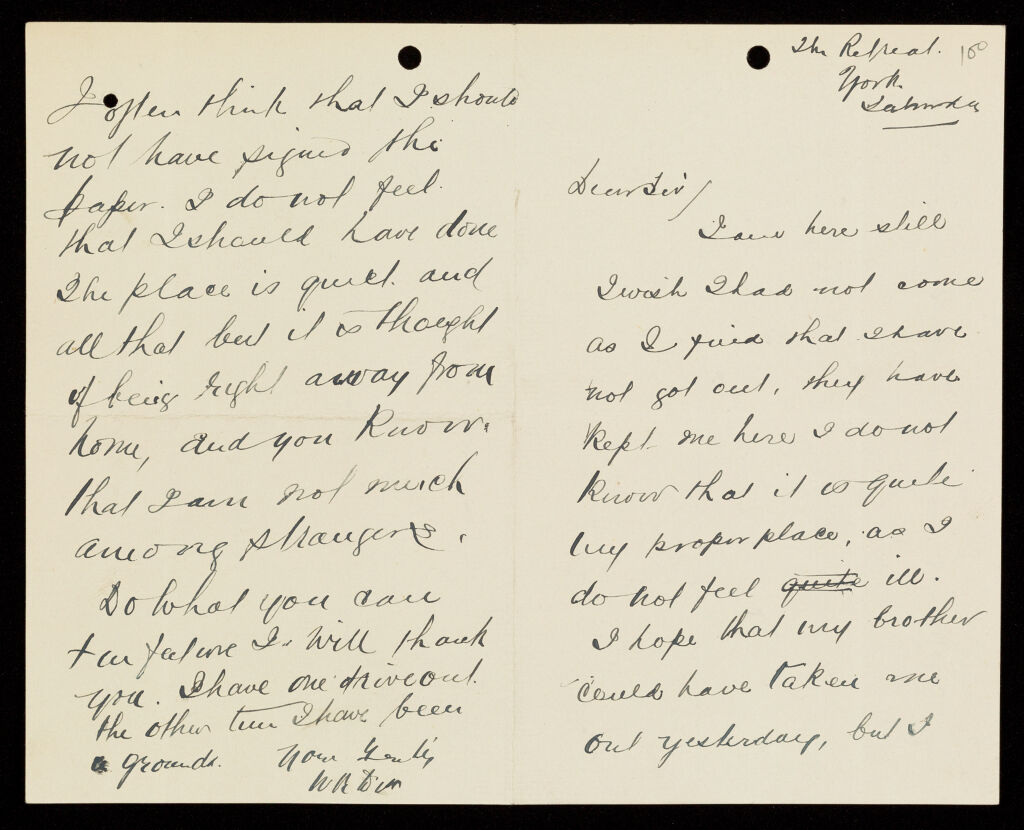 The Retreat. 160
York
Saturday
Dear Sir/
I am here still
I wish I had not come
as I find that I have
not got out, they have
kept me here I do not
know that it is quite
my proper place, as I
do not feel quite ill.
I hope that my brother
could have taken me
out yesterday, but I
I often think that I should
not have signed the
paper. I do not feel
that I should have done
The place is quiet. and
all that but it is thought
of being right away from
home, and you know
that I am not much
among strangers.
Do what you can
future I will thank
you. I have one drive out.
the other I have been
grounds. Your